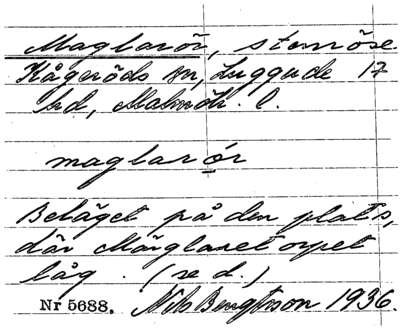 Maglarör, stenröse.
Kågeröds sn, Luggude 17
hd, Malmöh. l.
maglarór
Beläget på den plats,
där Märglaretorpet
låg. (se d.)
Nr 5688. Nils Bengtsson 1936.